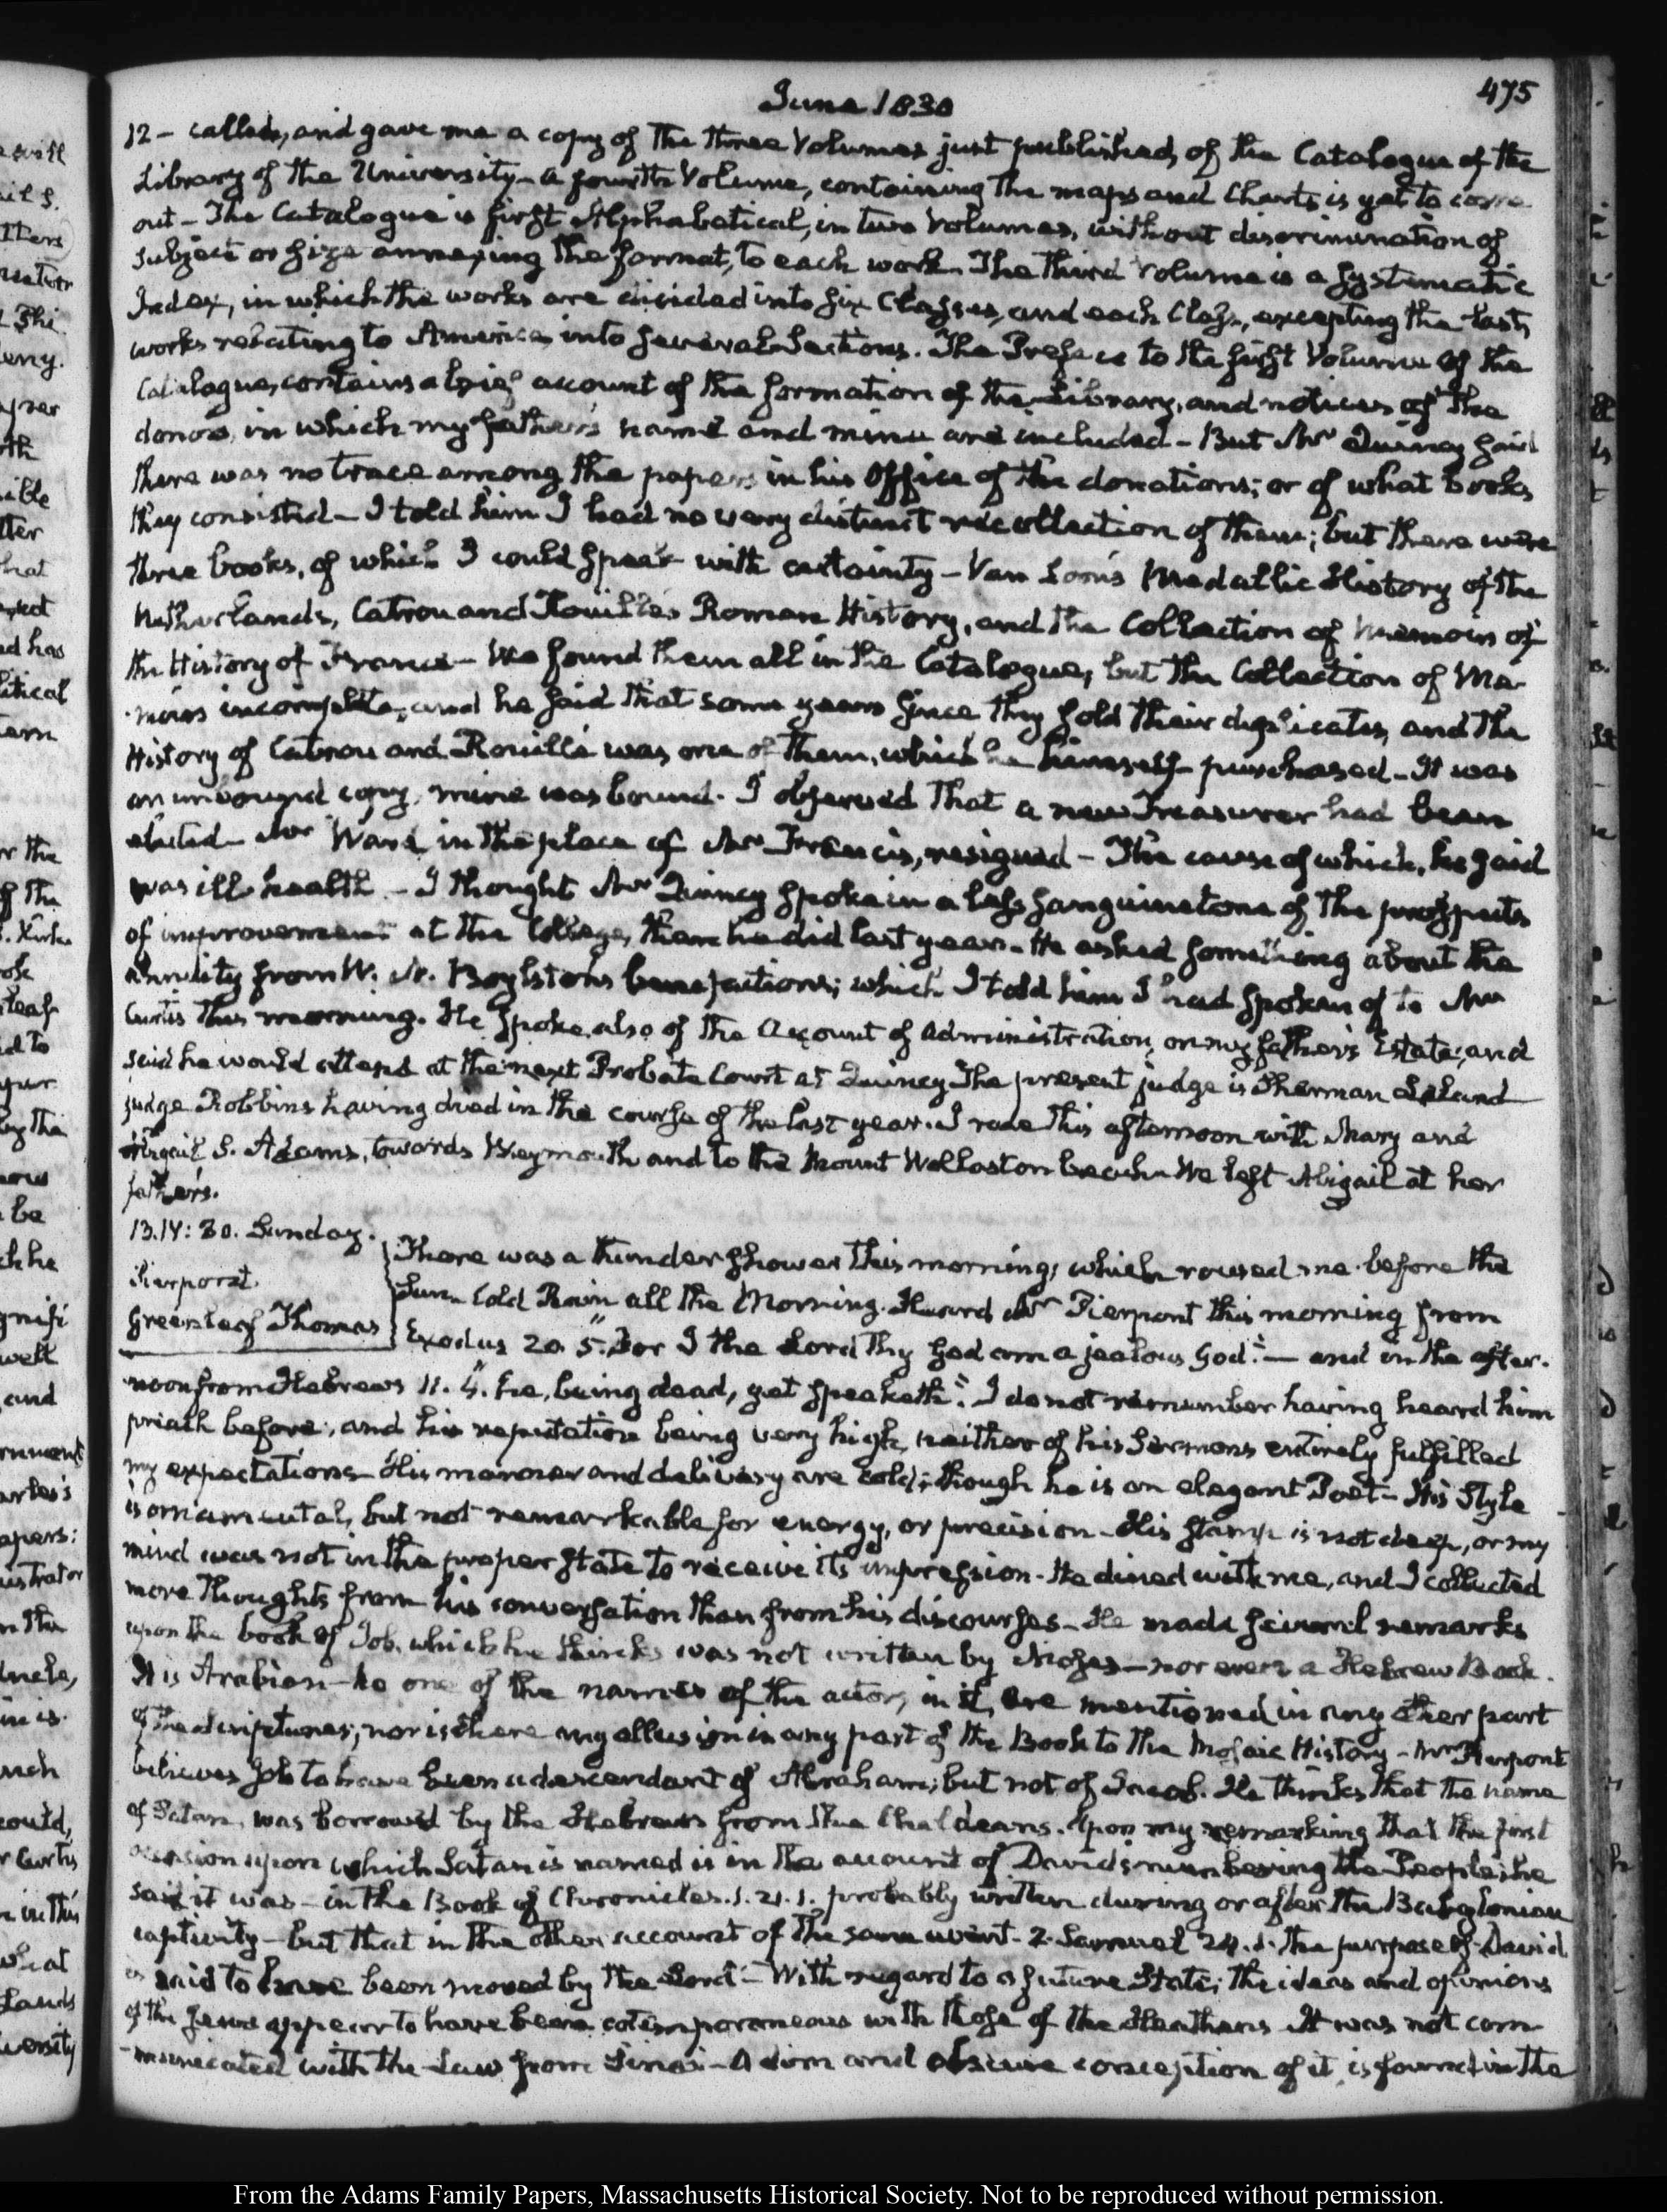 475
June 1830
12 – called, and gave me a copy of the three Volumes just published, of the Catalogue of the
Library of the University – a fourth Volume, containing the maps and Charts is yet to come
out – The Catalogue is first Alphabetical, in two Volumes, without discrimination of
subject or size annexing the format, to each work. The third Volume is a systematic
Index, in which the works are divided into six Classes, and each Class, excepting the last,
works relating to America into several Sections. The Preface to the first Volume of the
Catalogue, contains a brief account of the formation of the Library, and notices of the
donors, in which my father's name and mine are included – But Mr Quincy said
there was no trace among the papers in his Office of the donations; or of what books
they consisted – I told him I had no very distinct recollection of them; but there were
three books, of which I could speak with certainty – Van Loon's Medallic History of the
Netherlands, Catrou and Rouillé's Roman History, and the Collection of Memoirs of
the History of France – We found them all in the Catalogue, but the Collection of Me-
-moirs incomplete, and he said that some years since they sold their duplicates, and the
History of Catrou and Rouillé was one of them, which he himself purchased – It was
an unbound copy, mine was bound. I observed that a new Treasurer had been
elected – Mr Ward in the place of Mr Francis, resigned – The cause of which, he said
was ill health – I thought Mr Quincy spoke in a less sanguine tone of the prospects
of improvement at the College, than he did last year – He asked something about the
annuity from W. N. Boylston's benefactions; which I told him I had spoken of to Mr
Curtis this morning. He spoke also of the Account of administration, on my father's Estate, and
said he would attend at the next Probate Court at Quincy The present judge is Sherman Leland
judge Robbins having died in the course of the last year. I rode this afternoon with Mary and
Abigail S. Adams, towards Weymouth and to the Mount Wollaston beach We left Abigail at her
father's.
13. IV: 30. Sunday.
Pierpont.
Greenleaf Thomas
There was a thunder shower this morning, which roused me before the
Sun – Cold Rain all the Morning. Heard Mr Pierpont this morning from
Exodus 20. 5. "For I the Lord thy God am a jealous God." – and in the after-
-noon from Hebrews 11. 4. "he, being dead, yet speaketh". I do not remember having heard him
preach before, and his reputation being very high, neither of his Sermons entirely fulfilled
my expectations – His manner and delivery are cold; though he is an elegant Poet – His Style
is ornamental, but not remarkable for energy, or precision – His stamp is not deep, or my
mind was not in the proper state to receive its impression – He dined with me, and I collected
more thoughts from his conversation than from his discourses – He made several remarks
upon the book of Job, which he thinks was not written by Moses – nor even a Hebrew Book.
It is Arabian – No one of the names of the actors, in it, are mentioned in any other part
of the Scriptures; nor is there any allusion in any part of the Book to the Mosaic History – Mr Pierpont
believes Job to have been a descendant of Abraham; but not of Jacob. He thinks that the name
of Satan, was borrowed by the Hebrews from the Chaldeans. Upon my remarking that the first
occasion upon which Satan is named is in the account of David's numbering the People, he
said it was – in the Book of Chronicles. 1. 21. 1. probably written during or after the Babylonian
captivity – but that in the other account of the same event – 2. Samuel 24. 1. the purpose of David
is said to have been moved by the Lord – With regard to a future State; the ideas and opinions
of the Jews appear to have been cotemporaneous with those of the Heathens It was not com-
-municated with the Law from Sinai – A dim and obscure conception of it, is found in the
From the Adams Family Papers, Massachusetts Historical Society. Not to be reproduced without permission.